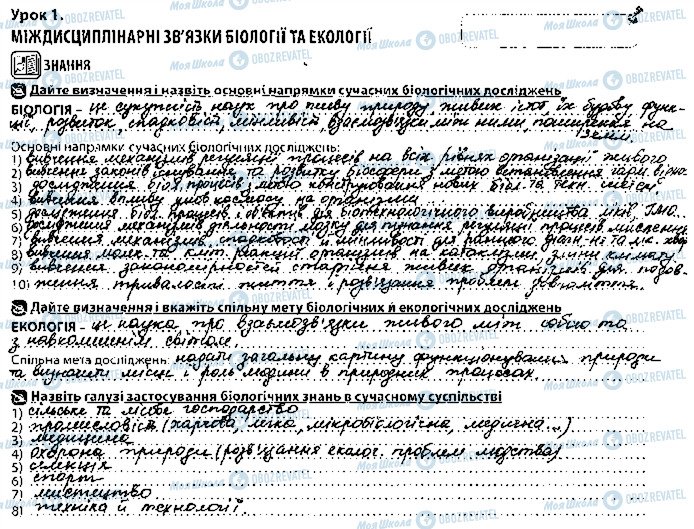 Урок 1.
МІЖДИСЦИПЛІНАРНІ ЗВ'ЯЗКИ БІОЛОГІЇ ТА ЕКОЛОГІЇ
ЗНАННЯ
Дайте визначення і назвіть основні напрямки сучасних біологічних досліджень
БІОЛОГІЯ – це сукупність наук про живу природу живих істот їх будову функ-
ції, розвиток, спадковість, мінливість, взаємозв'язки між ними, поширення на
Землі
Основні напрямки сучасних біологічних досліджень:
1) вивчення механізмів регуляції процесів на всіх рівнях організації живого
2) вивчення законів існування та розвитку біосфери з метою встановлення гарм. відно-
3) дослідження біол. процесів з метою конструювання нових біол. та техн. систем.
4) вивчення впливу умов космосу на організми
5) дослідження біол. процесів і об'єктів для біотехнологічного виробництва ліків, ГМО.
6) дослідження механізмів діяльності мозку для пізнання регуляції процесів мислення
7) вивчення механізмів спадковості і мінливості для раннього діагн.
8) вивчення мол. та кліт. реакцій організмів на катаклізми, зміни клімату
9) вивчення закономірностей старіння живих організмів для подов-
10) ження тривалості життя і розв'язання проблем довголіття.
Дайте визначення і вкажіть спільну мету біологічних й екологічних досліджень
ЕКОЛОГІЯ – це наука про взаємозв'язки живого між собою та
з навколишнім світом.
Спільна мета досліджень: надати загальну картину функціонування природи
та визначити місце і роль людини в природних процесах.
Назвіть галузі застосування біологічних знань в сучасному суспільстві
1) сільське та лісове господарство
2) промисловість (харчова, легка, мікробіологічна, медична...)
3) медицина
4) охорона природи (розв'язання еколог. проблем людства)
5)
6) спорт
7) мистецтво
8) техніка й технології.
Моя Школа OBOZREVATEL